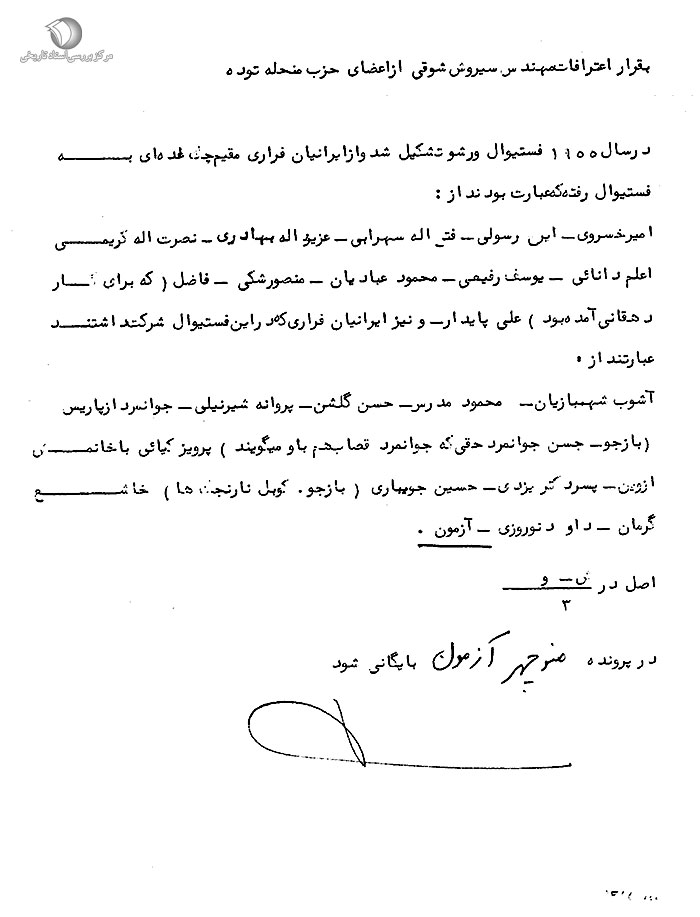 مرکز بررسی اسناد تاریخی
بقرار اعترافات مهندس سیروش شوقی ازاعضای حزب منحله توده
درسال ۱۹۵۵ فستیوال ورشو تشکیل شد وازایرانیان فراری مقیم عده‌ای به
فستیوال رفته‌که‌عبارت بودند از :
امیرخسروی – ابن رسولی – فتح اله سهرابی – عزیز اله بهادری – نصرت اله کریمی
اعلم دانائی – یوسف رفیعی – محمود عبادیان – منصورشکی – فاضل ( که برای کار
دهقانی آمده‌بود ) علی پایدار – و نیز ایرانیان فراری‌که‌دراین‌فستیوال شرکت‌داشتند
عبارتند از ۰
آشوب شهبازیان – محمود مدرس – حسن گلشن – پروانه شیرنیلی – جوانمرد ازپاریس
( بازجو – حسن جوانمرد حقی‌که جوانمرد قصاب‌هم باو میگویند ) پرویز کیائی باخانمش
ازوین – پسردکتر یزدی – حسین جویباری ( بازجو . کوپل نارنجک ها ) خاشع
گرمان – داود نوروزی – آزمون .
اصل در ش – و
۳
در پرونده منوچهر آزمون بایگانی شود